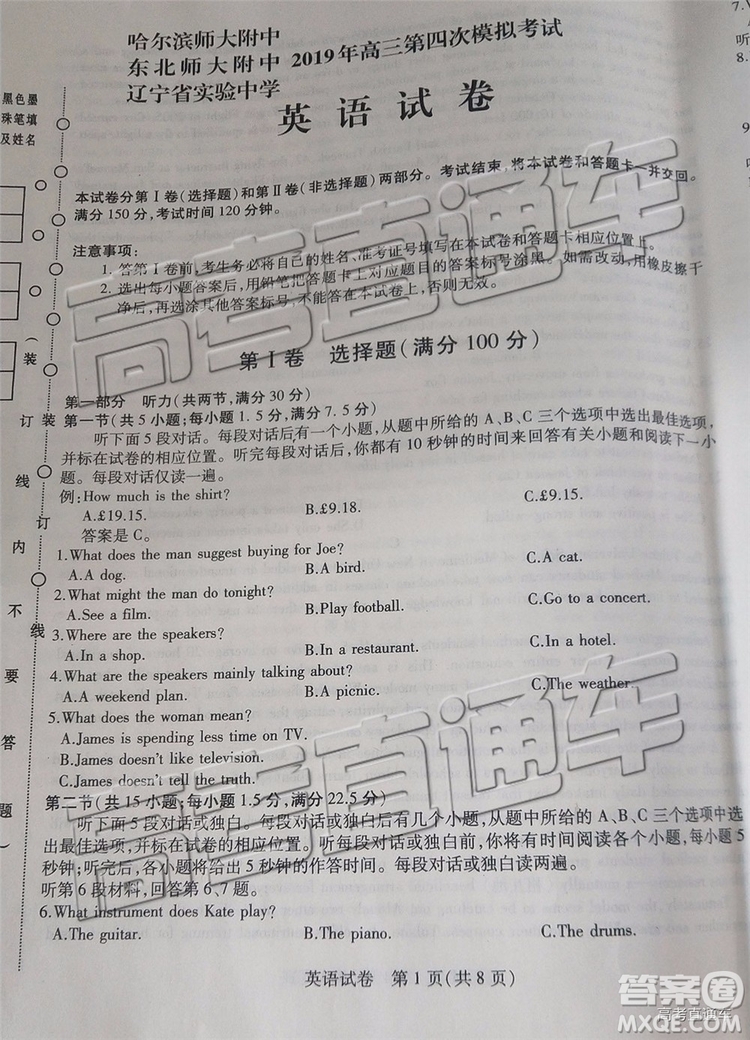 哈尔滨师大附中
东北师大附中 2019年高三第四次模拟考试
辽宁省实验中学
英语试卷
黑色墨
珠笔填
及姓名
本试卷分第Ⅰ卷(选择题)和第Ⅱ卷(非选择题)两部分。考试结束,将本试卷和答题卡一并交回。
满分150分,考试时间120分钟。
注意事项:
1. 答第Ⅰ卷前,考生务必将自己的姓名、准考证号填写在本试卷和答题卡相应位置上。
2. 选出每小题答案后,用铅笔把答题卡上对应题目的答案标号涂黑。如需改动,用橡皮擦干
净后,再选涂其他答案标号,不能答在本试卷上,否则无效。
第Ⅰ卷 选择题(满分100分)
第一部分 听力(共两节,满分30分)
第一节(共5小题;每小题1.5分,满分7.5分)
听下面5段对话。每段对话后有一个小题,从题中所给的A、B、C三个选项中选出最佳选项,
并标在试卷的相应位置。听完每段对话后,你都有10秒钟的时间来回答有关小题和阅读下一小
题。每段对话仅读一遍。
例:How much is the shirt?
A.£19.15. B.£9.18. C.£9.15.
答案是C。
1.What does the man suggest buying for Joe?
A.A dog. B.A bird. C.A cat.
2.What might the man do tonight?
A.See a film. B.Play football. C.Go to a concert.
3.Where are the speakers?
A.In a shop. B.In a restaurant. C.In a hotel.
4.What are the speakers mainly talking about?
A.A weekend plan. B.A picnic. C.The weather.
5.What does the woman mean?
A.James is spending less time on TV.
B.James doesn't like television.
C.James doesn't tell the truth.
第二节(共15小题;每小题1.5分,满分22.5分)
听下面5段对话或独白。每段对话或独白后有几个小题,从题中所给的A、B、C三个选项中选
出最佳选项,并标在试卷的相应位置。听每段对话或独白前,你将有时间阅读各个小题,每小题5
秒钟;听完后,各小题将给出5秒钟的作答时间。每段对话或独白读两遍。
听第6段材料,回答第6、7题。
6.What instrument does Kate play?
A.The guitar. B.The piano. C.The drums.
英语试卷 第1页(共8页)
(装
订
线
内
不
要
答
题)
装
订
线
7.
听
8.
9
高考直通车
高考直通车
答案圈
高考直通车
MXQE.COM